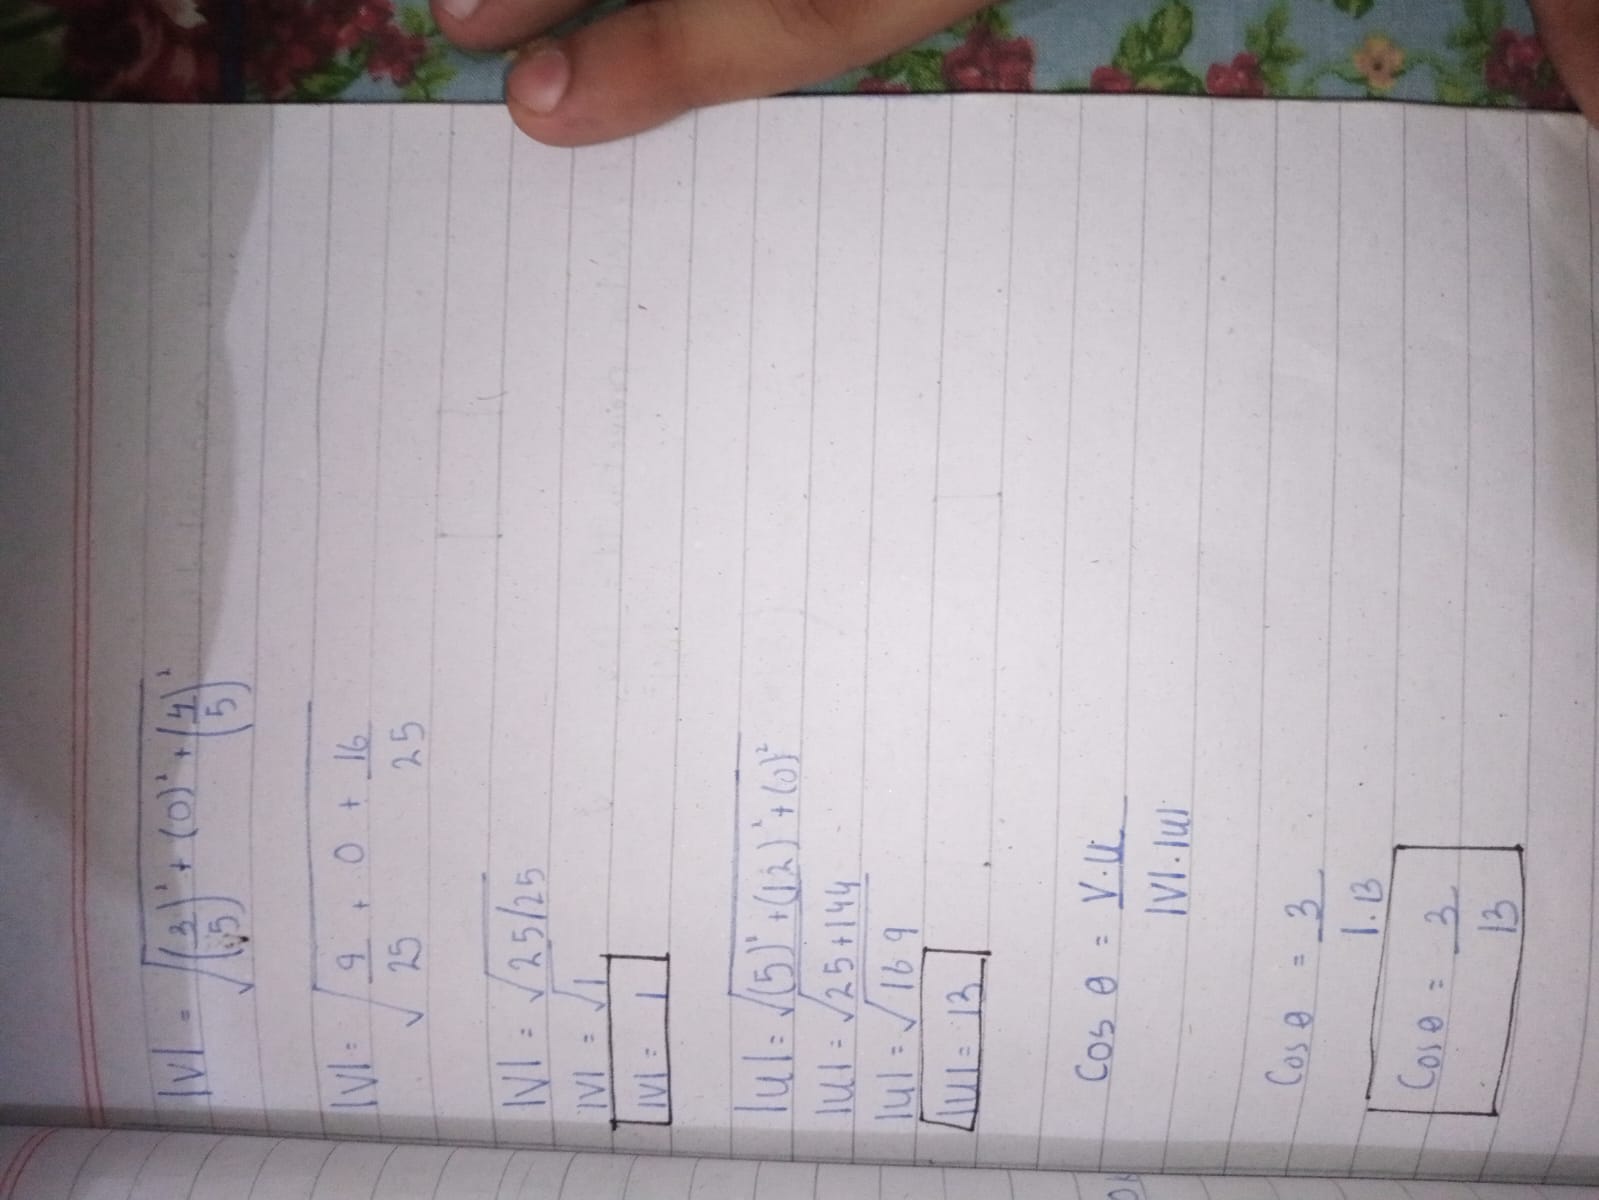 |V| = √(3/5)² + (0)² + (4/5)²
|V| = √9/25 + 0 + 16/25
|V| = √25/25
|V| = √1
|V| = 1
|u| = √(5)² + (12)² + (0)²
|u| = √25+144
|u| = √169
|u| = 13
Cos θ = V.U / |V|.|u|
Cos θ = 3 / 1.13
Cos θ = 3 / 13